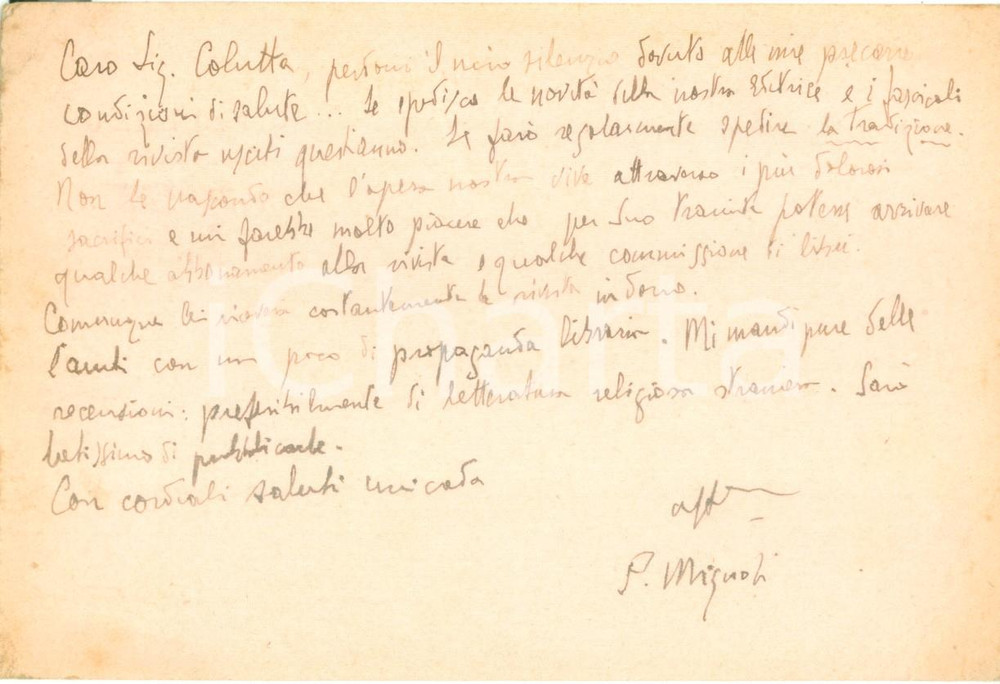 Caro Sig. Colutta, perdoni il mio silenzio dovuto alle mie precarie
condizioni di salute... Le spedisco le novità della nostra Editrice e i fascicoli
della rivista usciti quest'anno. Le farò regolarmente spedire la tradizione.
Non le nascondo che l'opera nostra vive attraverso i più dolorosi
sacrifici e mi farebbe molto piacere che per Suo tramite potesse arrivare
qualche abbonamento alla rivista e qualche commissione di libri.
Comunque Lei riceverà costantemente la rivista in dono.
L'aiuti con un poco di propaganda libraria. Mi mandi pure delle
recensioni: preferibilmente di letteratura religiosa straniera. Sarò
lietissimo di pubblicarle.
Con cordiali saluti mi creda
aff
P. Mignosi
iCharta